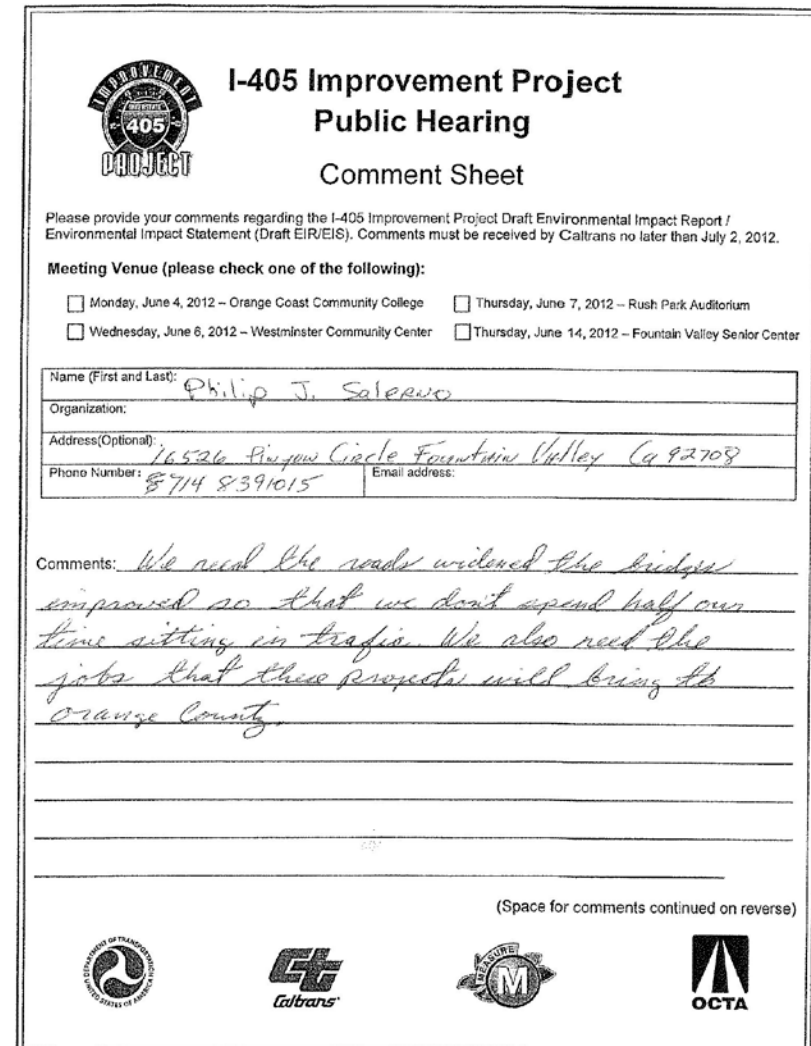 IMPROVEMENT
INTERSTATE
405
PROJECT
I-405 Improvement Project
Public Hearing
Comment Sheet
Please provide your comments regarding the I-405 Improvement Project Draft Environmental Impact Report /
Environmental Impact Statement (Draft EIR/EIS). Comments must be received by Caltrans no later than July 2, 2012.
Meeting Venue (please check one of the following):
Monday, June 4, 2012 – Orange Coast Community College
Thursday, June 7, 2012 – Rush Park Auditorium
Wednesday, June 6, 2012 – Westminster Community Center
Thursday, June 14, 2012 – Fountain Valley Senior Center
Name (First and Last): Philip J. Salerno
Organization:
Address(Optional): 16526 Pinyon Circle Fountain Valley Ca 92708
Phone Number: 714 8391015
Email address:
Comments: We need the roads widened the bridges
improved so that we don't spend half our
time sitting in trafic. We also need the
jobs that these projects will bring to
Orange County.
(Space for comments continued on reverse)
DEPARTMENT OF TRANSPORTATION
UNITED STATES OF AMERICA
Caltrans
MEASURE
M
OCTA